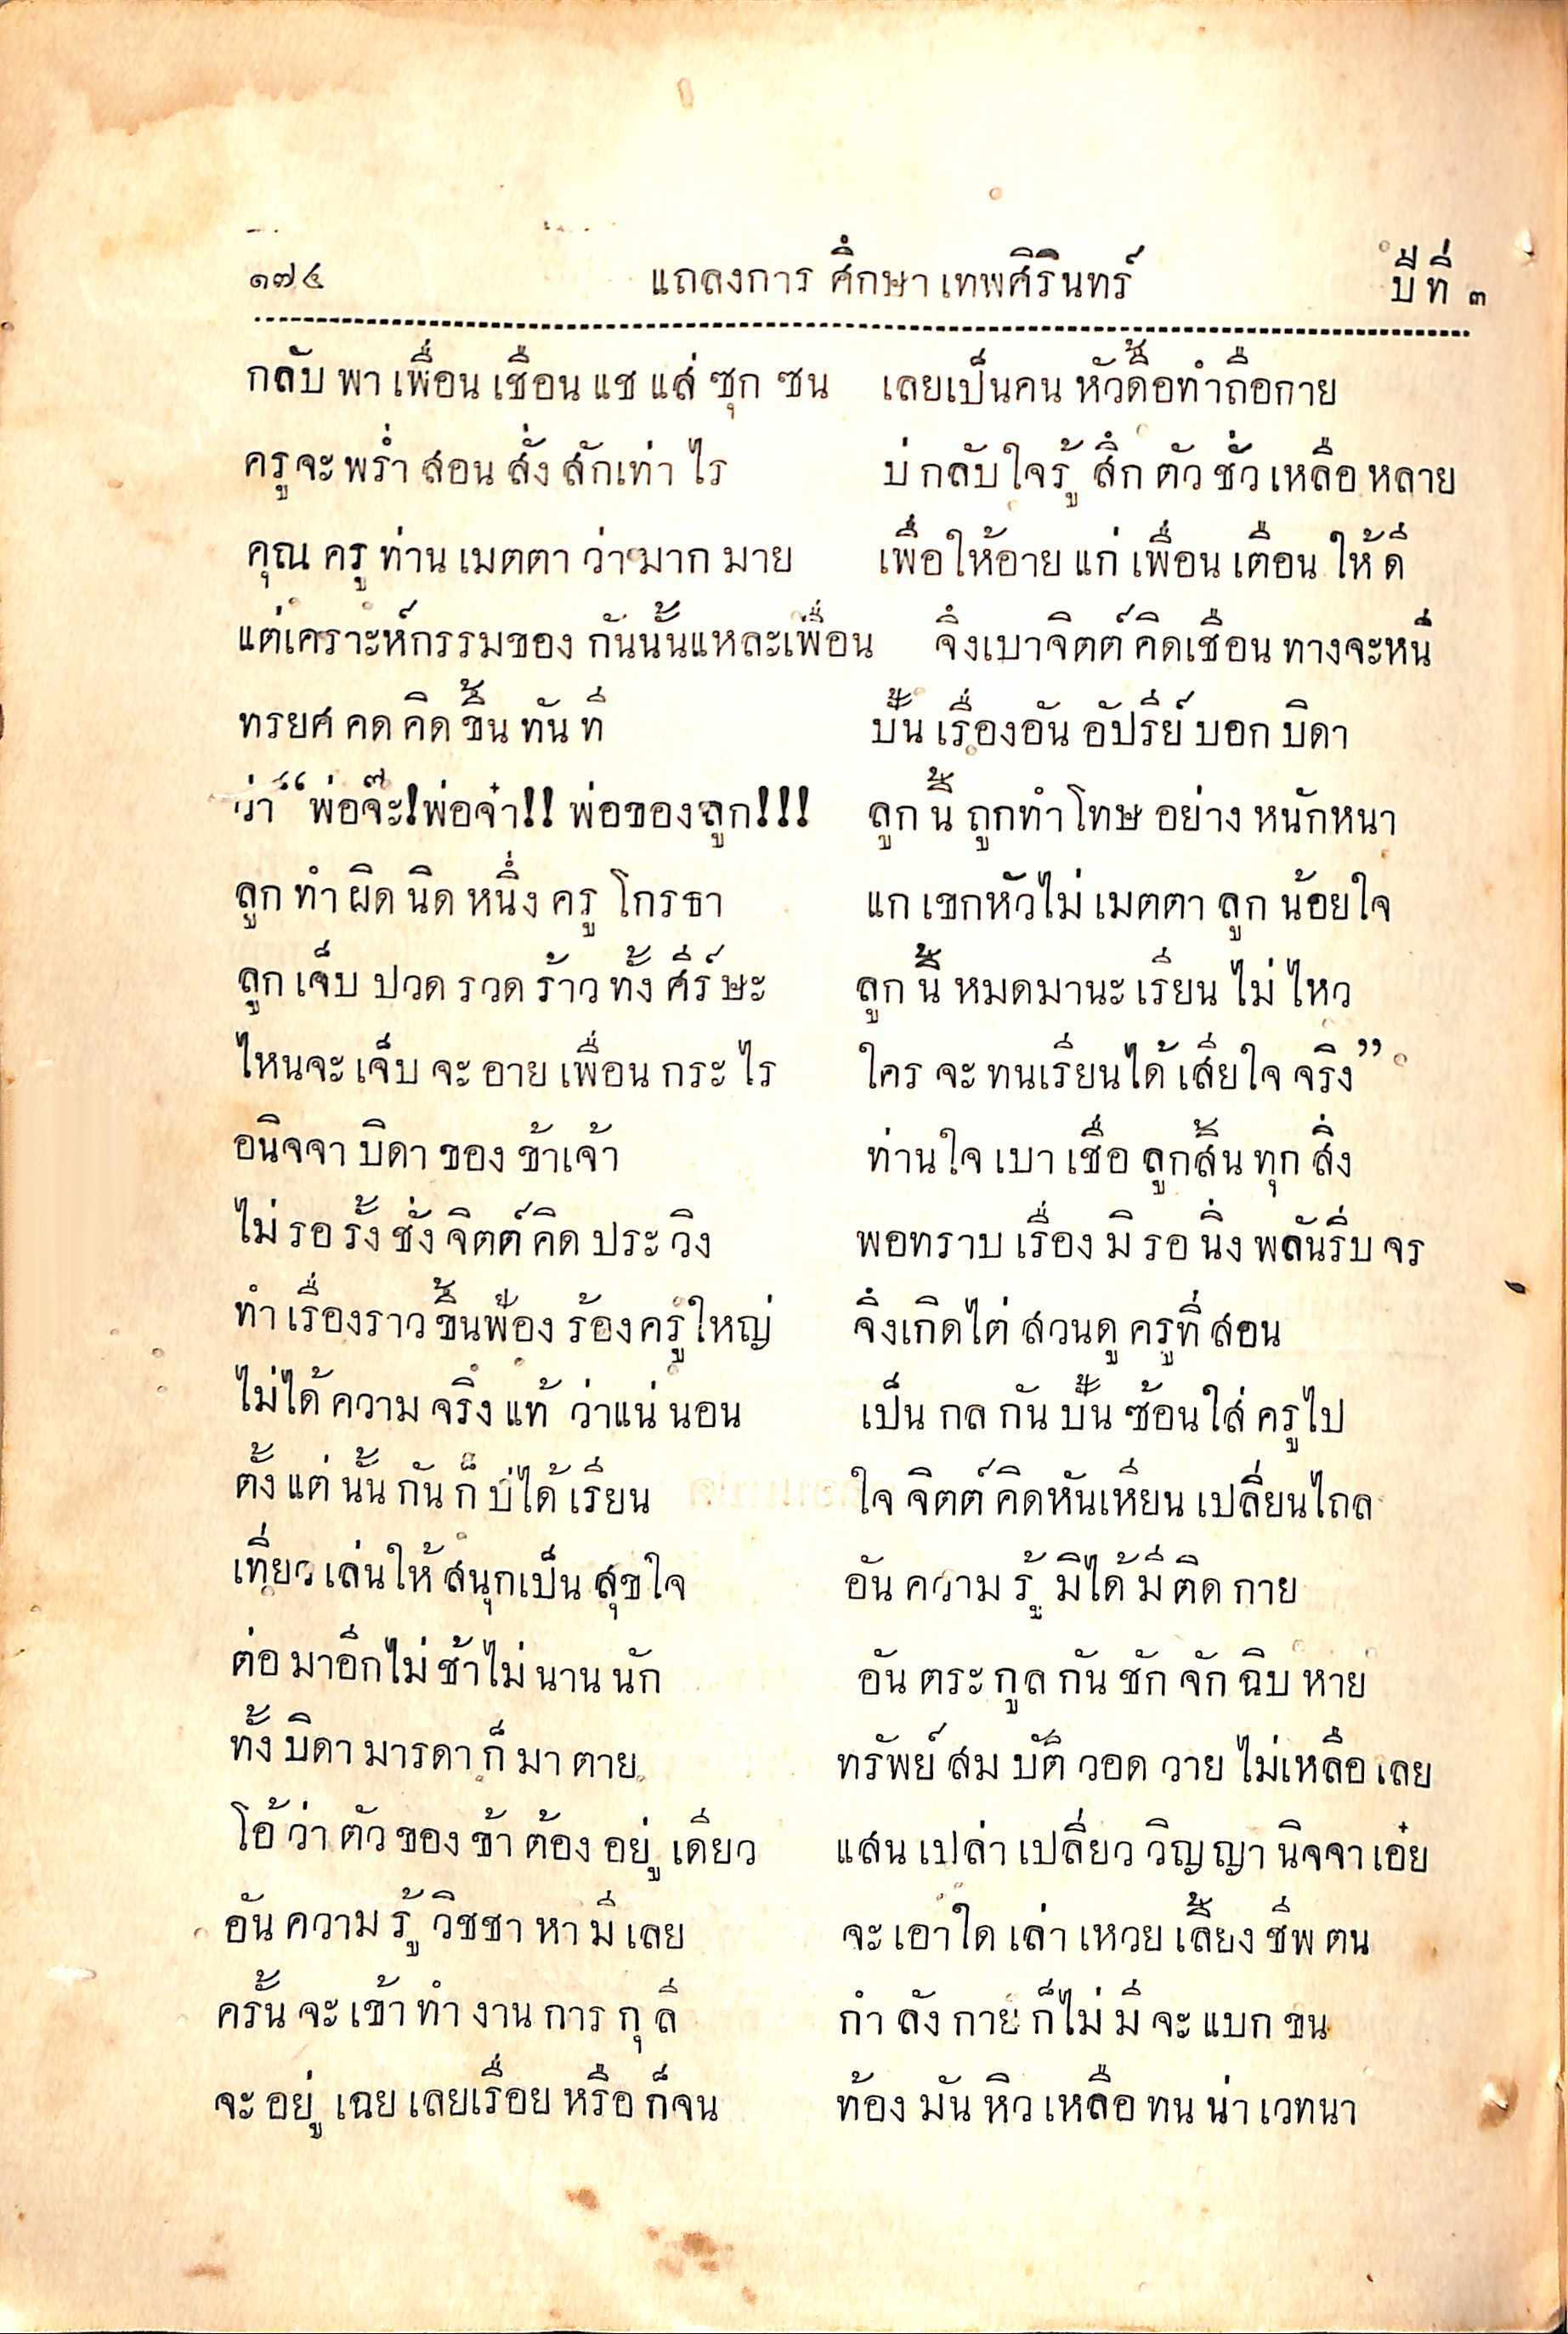 ๑๗๔ แถลงการศึกษาเทพศิรินทร์ ปีที่ ๓
กลับพาเพื่อนเชือนแชแส่ซุกซน เลยเป็นคนหัวดื้อทำถือกาย
ครูจะพร่ำสอนสั่งสักเท่าไร บ่กลับใจรู้สึกตัวชั่วเหลือหลาย
คุณครูท่านเมตตาว่ามากมาย เพื่อให้อายแก่เพื่อนเตือนให้ดี
แต่เคราะห์กรรมของกันนั้นแหละเพื่อน จึ่งเบาจิตต์คิดเชือนทางจะหนี
ทรยศคดคิดขึ้นทันที ปั้นเรื่องอันอัปรีย์บอกบิดา
ว่า “พ่อจ๊ะ!พ่อจ๋า!! พ่อของลูก!!! ลูกนี้ถูกทำโทษอย่างหนักหนา
ลูกทำผิดนิดหนึ่งครูโกรธา แกเขกหัวไม่เมตตาลูกน้อยใจ
ลูกเจ็บปวดรวดร้าวทั้งศีร์ษะ ลูกนี้หมดมานะเรียนไม่ไหว
ไหนจะเจ็บจะอายเพื่อนกระไร ใครจะทนเรียนได้เสียใจจริง”
อนิจจาบิดาของข้าเจ้า ท่านใจเบาเชื่อลูกสิ้นทุกสิ่ง
ไม่รอรั้งชั่งจิตต์คิดประวิง พอทราบเรื่องมิรอนิ่งพลันรีบจร
ทำเรื่องราวขึ้นฟ้องร้องครูใหญ่ จึ่งเกิดไต่สวนดูครูที่สอน
ไม่ได้ความจริงแท้ว่าแน่นอน เป็นกลกันปั้นซ้อนใส่ครูไป
ตั้งแต่นั้นกันก็บ่ได้เรียน ใจจิตต์คิดหันเหียนเปลี่ยนไถล
เที่ยวเล่นให้สนุกเป็นสุขใจ อันความรู้มิได้มีติดกาย
ต่อมาอีกไม่ช้าไม่นานนัก อันตระกูลกันชักจักฉิบหาย
ทั้งบิดามารดาก็มาตาย ทรัพย์สมบัติวอดวายไม่เหลือเลย
โอ้ว่าตัวของข้าต้องอยู่เดียว แสนเปล่าเปลี่ยววิญญานิจจาเอ๋ย
อันความรู้วิชชาหามีเลย จะเอาใดเล่าเหวยเลี้ยงชีพตน
ครั้นจะเข้าทำงานการกุลี กำลังกายก็ไม่มีจะแบกขน
จะอยู่เฉยเลยเรื่อยหรือก็จน ท้องมันหิวเหลือทนน่าเวทนา